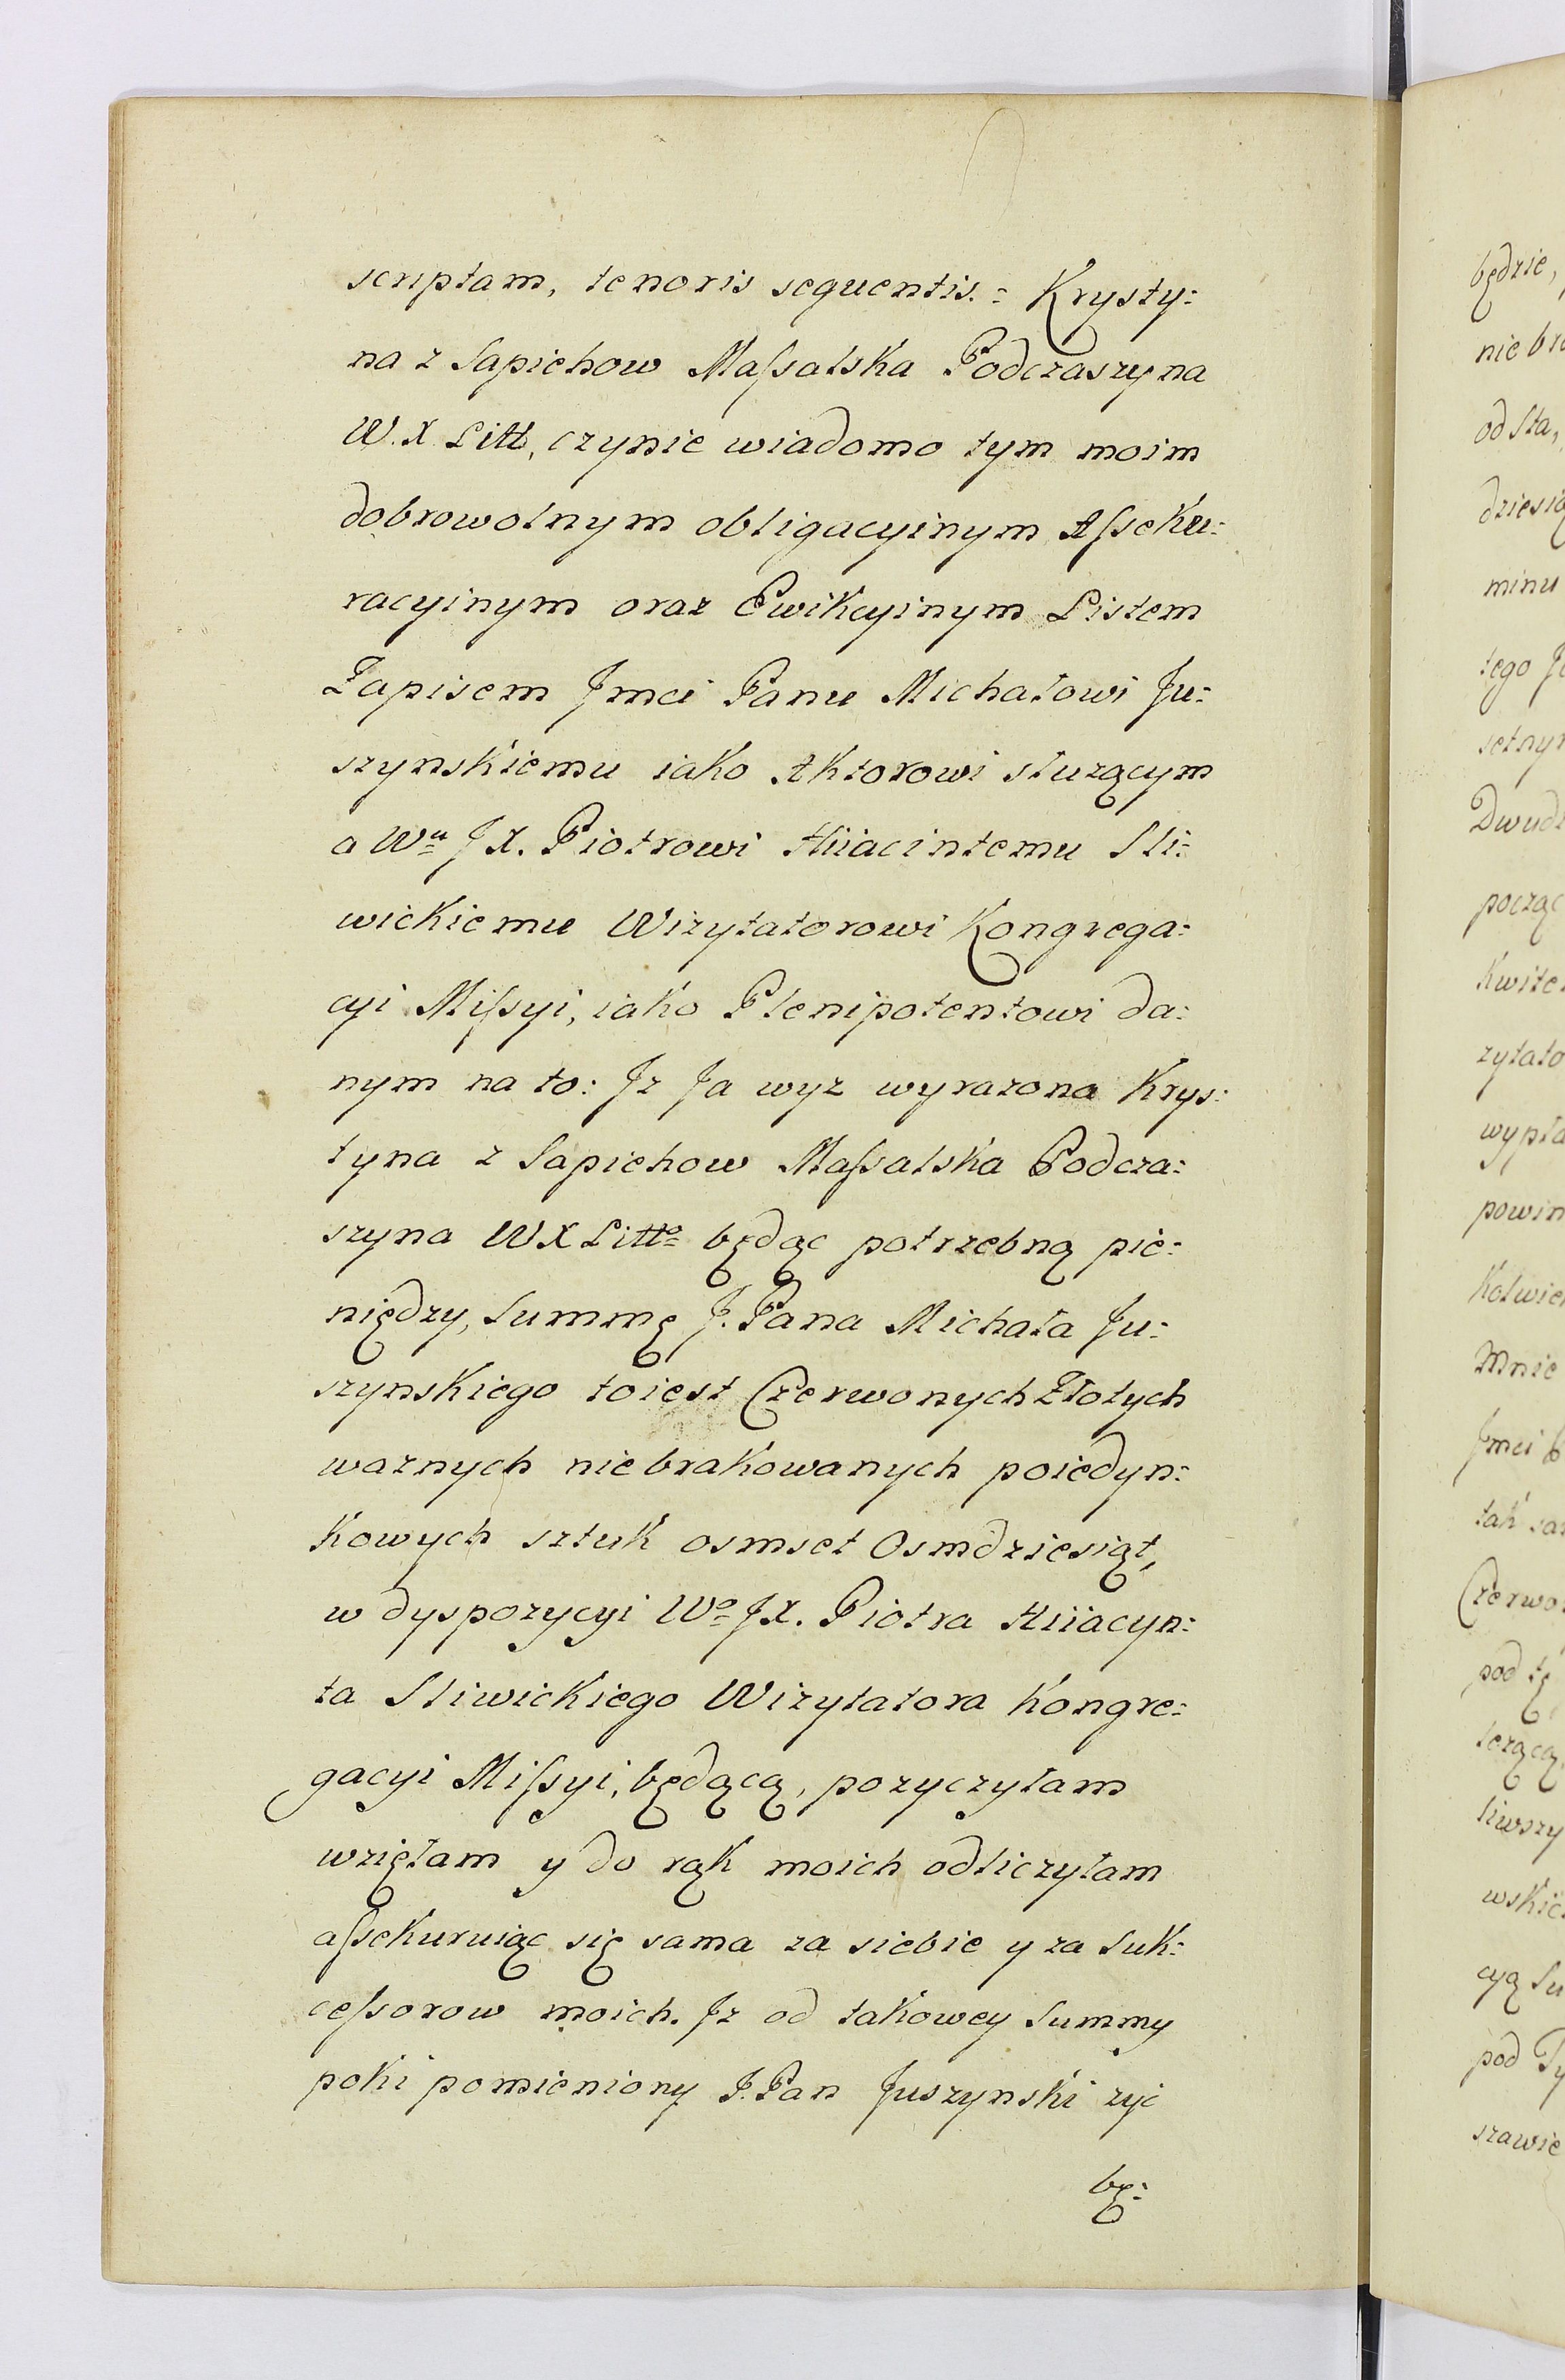 scriptam, tenoris sequentis.= Krysty:
na z Sapiehow Massalska Podczaszyna
W. X. Litt, czynie wiadomo tym moim
dobrowolnym obligacyinym Asseku:
racyinym oraz Ewikcyinym Listem
Zapisem Jmci Panu Michałowi Ju:
szynskiemu iako Aktorowi służącym
a Wu JX. Piotrowi Hiiacintemu Sli:
wickiemu Wizytatorowi Kongrega:
cyi Missyi, iako Plenipotentowi da:
nym na to: Jz Ja wyz wyrazona Krys:
tyna z Sapiehow Massalska Podcza:
szyna WX Litto będąc potrzebną pie:
niędzy, Summę J. Pana Michała Ju:
szynskiego toiest Czerwonych Złotych
waznych niebrakowanych poiedyn:
kowych sztuk osmset Osmdziesiąt,
w dyspozycyi Wo JX. Piotra Hiiacyn:
ta Sliwickiego Wizytatora Kongre:
gacyi Missyi, będącą, pozyczyłam
wzięłam y do rąk moich odliczyłam
assekuruiąc się sama za siebie y za Suk:
cessorow moich. Jz od takowey Summy
poki pomieniony J. Pan Juszynski zyć
bę:
będzie,
nie br
od Sta,
dziesią
minu
tego J
setnym
Dwudz
począ
Kwite
zytato
wypła
powin
Kolwie
Mnie
Jmci
tak sa
Czerwo
pod tę
lezącą
liwszy
wskie
cyą Su
pod Ty
szawie